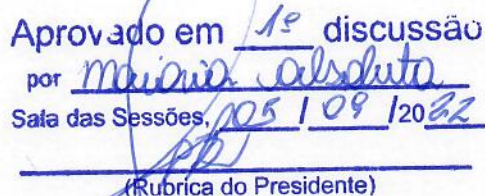 Aprovado em 1ª discussão
por maioria absoluta
Sala das Sessões, 05 / 09 /2022
(Rubrica do Presidente)